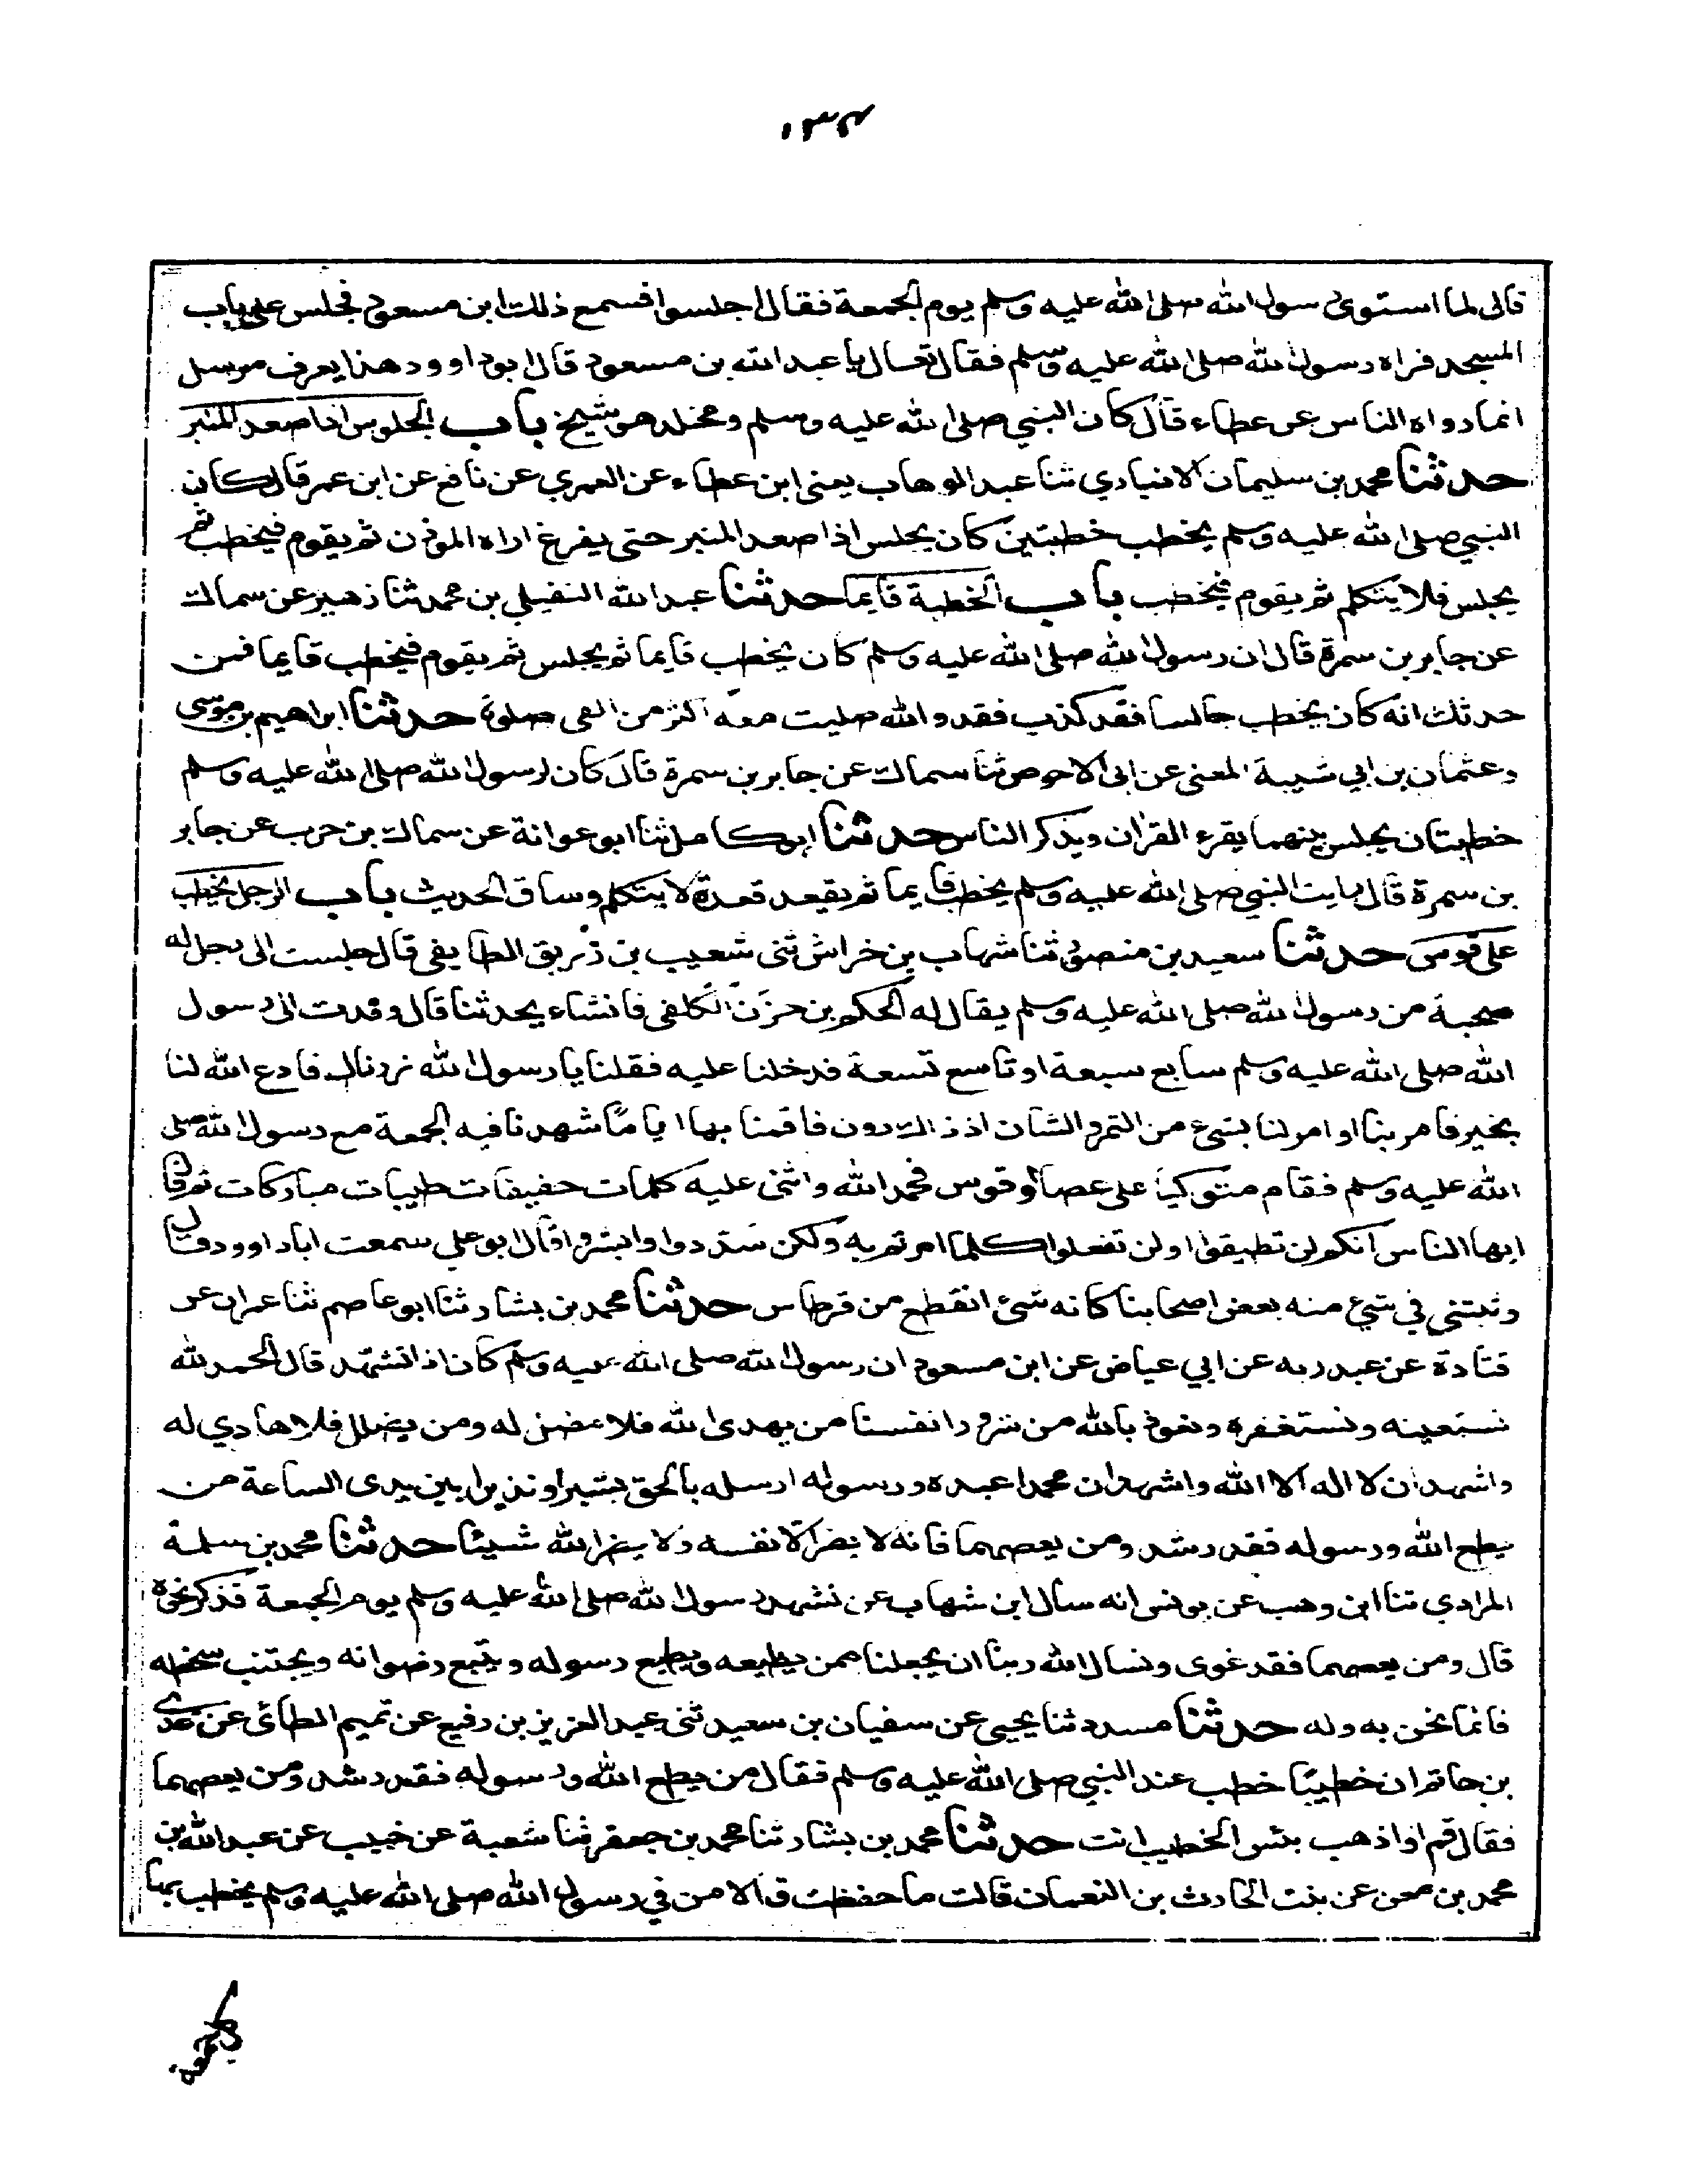 قال لما استوى رسول الله صلى الله عليه وسلم يوم الجمعة فقال اجلسوا فسمع ذلك ابن مسعود فجلس على باب
المسجد فراه رسول الله صلى الله عليه وسلم فقال تعال يا عبد الله بن مسعود قال ابو داوود هذا يعرف مرسل
انما رواه الناس عن عطاء قال كان النبي صلى الله عليه وسلم ومخلد هو شيخ باب الجلوس اذا صعد المنبر
حدثنا محمد بن سليمان الانباري ثنا عبد الوهاب يعنى ابن عطاء عن العمري عن نافع عن ابن عمر قال كان
النبي صلى الله عليه وسلم يخطب خطبتين كان يجلس اذا صعد المنبر حتى يفرغ اراه الموذن ثم يقوم فيخطب ثم
يجلس فلا يتكلم ثم يقوم فيخطب باب الخطبة قايما حدثنا عبد الله النفيلي بن محمد ثنا زهير عن سماك
عن جابر بن سمرة قال ان رسول الله صلى الله عليه وسلم كان يخطب قايما ثم يجلس ثم يقوم فيخطب قايما فمن
حدثك انه كان يخطب جالسا فقد كذب فقد والله صليت معه اكثر من الفى صلوة حدثنا ابراهيم بن موسى
وعثمان بن ابي شيبة المعنى عن ابى الاحوص ثنا سماك عن جابر بن سمرة قال كان لرسول الله صلى الله عليه وسلم
خطبتان يجلس بينهما يقرء القران ويذكر الناس حدثنا ابو كامل ثنا ابو عوانة عن سماك بن حرب عن جابر
بن سمرة قال رايت النبي صلى الله عليه وسلم يخطب قايما ثم يقعد قعدة لا يتكلم وساق الحديث باب الرجل يخطب
على قوس حدثنا سعيد بن منصور ثنا شهاب بن خراش ثنى شعيب بن زريق الطايفى قال جلست الى رجل له
صحبة من رسول الله صلى الله عليه وسلم يقال له الحكم بن حزن الكلفى فانشاء يحدثنا قال وفدت الى رسول
الله صلى الله عليه وسلم سابع سبعة او تاسع تسعة فدخلنا عليه فقلنا يا رسول الله زرناك فادع الله لنا
بخير فامر بنا او امر لنا بشئ من التمر والشان اذ ذاك دون فاقمنا بها اياما شهدنا فيه الجمعة مع رسول الله صلى
الله عليه وسلم فقام متوكيا على عصا او قوس فحمد الله واثنى عليه كلمات خفيفات طيبات مباركات ثم قال
ايها الناس انكم لن تطيقوا او لن تفعلوا كلما امرتم به ولكن سددوا وابشروا قال ابو علي سمعت ابا داوود قال
وثبتني في شئ منه بعض اصحابنا كانه شئ انقطع من قرطاس حدثنا محمد بن بشار ثنا ابو عاصم ثنا عمران عن
قتادة عن عبد ربه عن ابي عياض عن ابن مسعود ان رسول الله صلى الله عليه وسلم كان اذا تشهد قال الحمد لله
نستعينه ونستغفره ونعوذ بالله من شرور انفسنا من يهدى الله فلا مضل له ومن يضلل فلا هادي له
واشهد ان لا اله الا الله واشهد ان محمدا عبده ورسوله ارسله بالحق بشيرا ونذيرا بين يدى الساعة من
يطع الله ورسوله فقد رشد ومن يعصهما فانه لا يضر الا نفسه ولا يضر الله شيئا حدثنا محمد بن سلمة
المرادي ثنا ابن وهب عن يونس انه سأل ابن شهاب عن تشهد رسول الله صلى الله عليه وسلم يوم الجمعة فذكر نحوه
قال ومن يعصهما فقد غوى ونسال الله ربنا ان يجعلنا ممن يطيعه ويطيع رسوله ويتبع رضوانه ويجتنب سخطه
فانما نحن به وله حدثنا مسدد ثنا يحيى عن سفيان بن سعيد ثنى عبد العزيز بن رفيع عن تميم الطائى عن عدى
بن حاتم ان خطيبا خطب عند النبي صلى الله عليه وسلم فقال من يطع الله ورسوله فقد رشد ومن يعصهما
فقال قم او اذهب بئس الخطيب انت حدثنا محمد بن بشار ثنا محمد بن جعفر ثنا شعبة عن خبيب عن عبد الله بن
محمد بن معن عن بنت الحارث بن النعمان قالت ما حفظت ق الا من في رسول الله صلى الله عليه وسلم يخطب بها